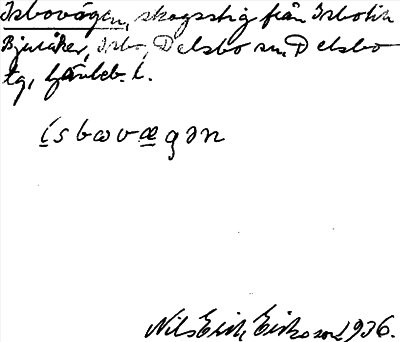 Isbovägen, skogsstig från Isbo till
Bjuråker, Isbo, Delsbo sn, Delsbo
tg, Gävleb. l.
ísbωvægən
Nils Erik Eriksson, 1936.